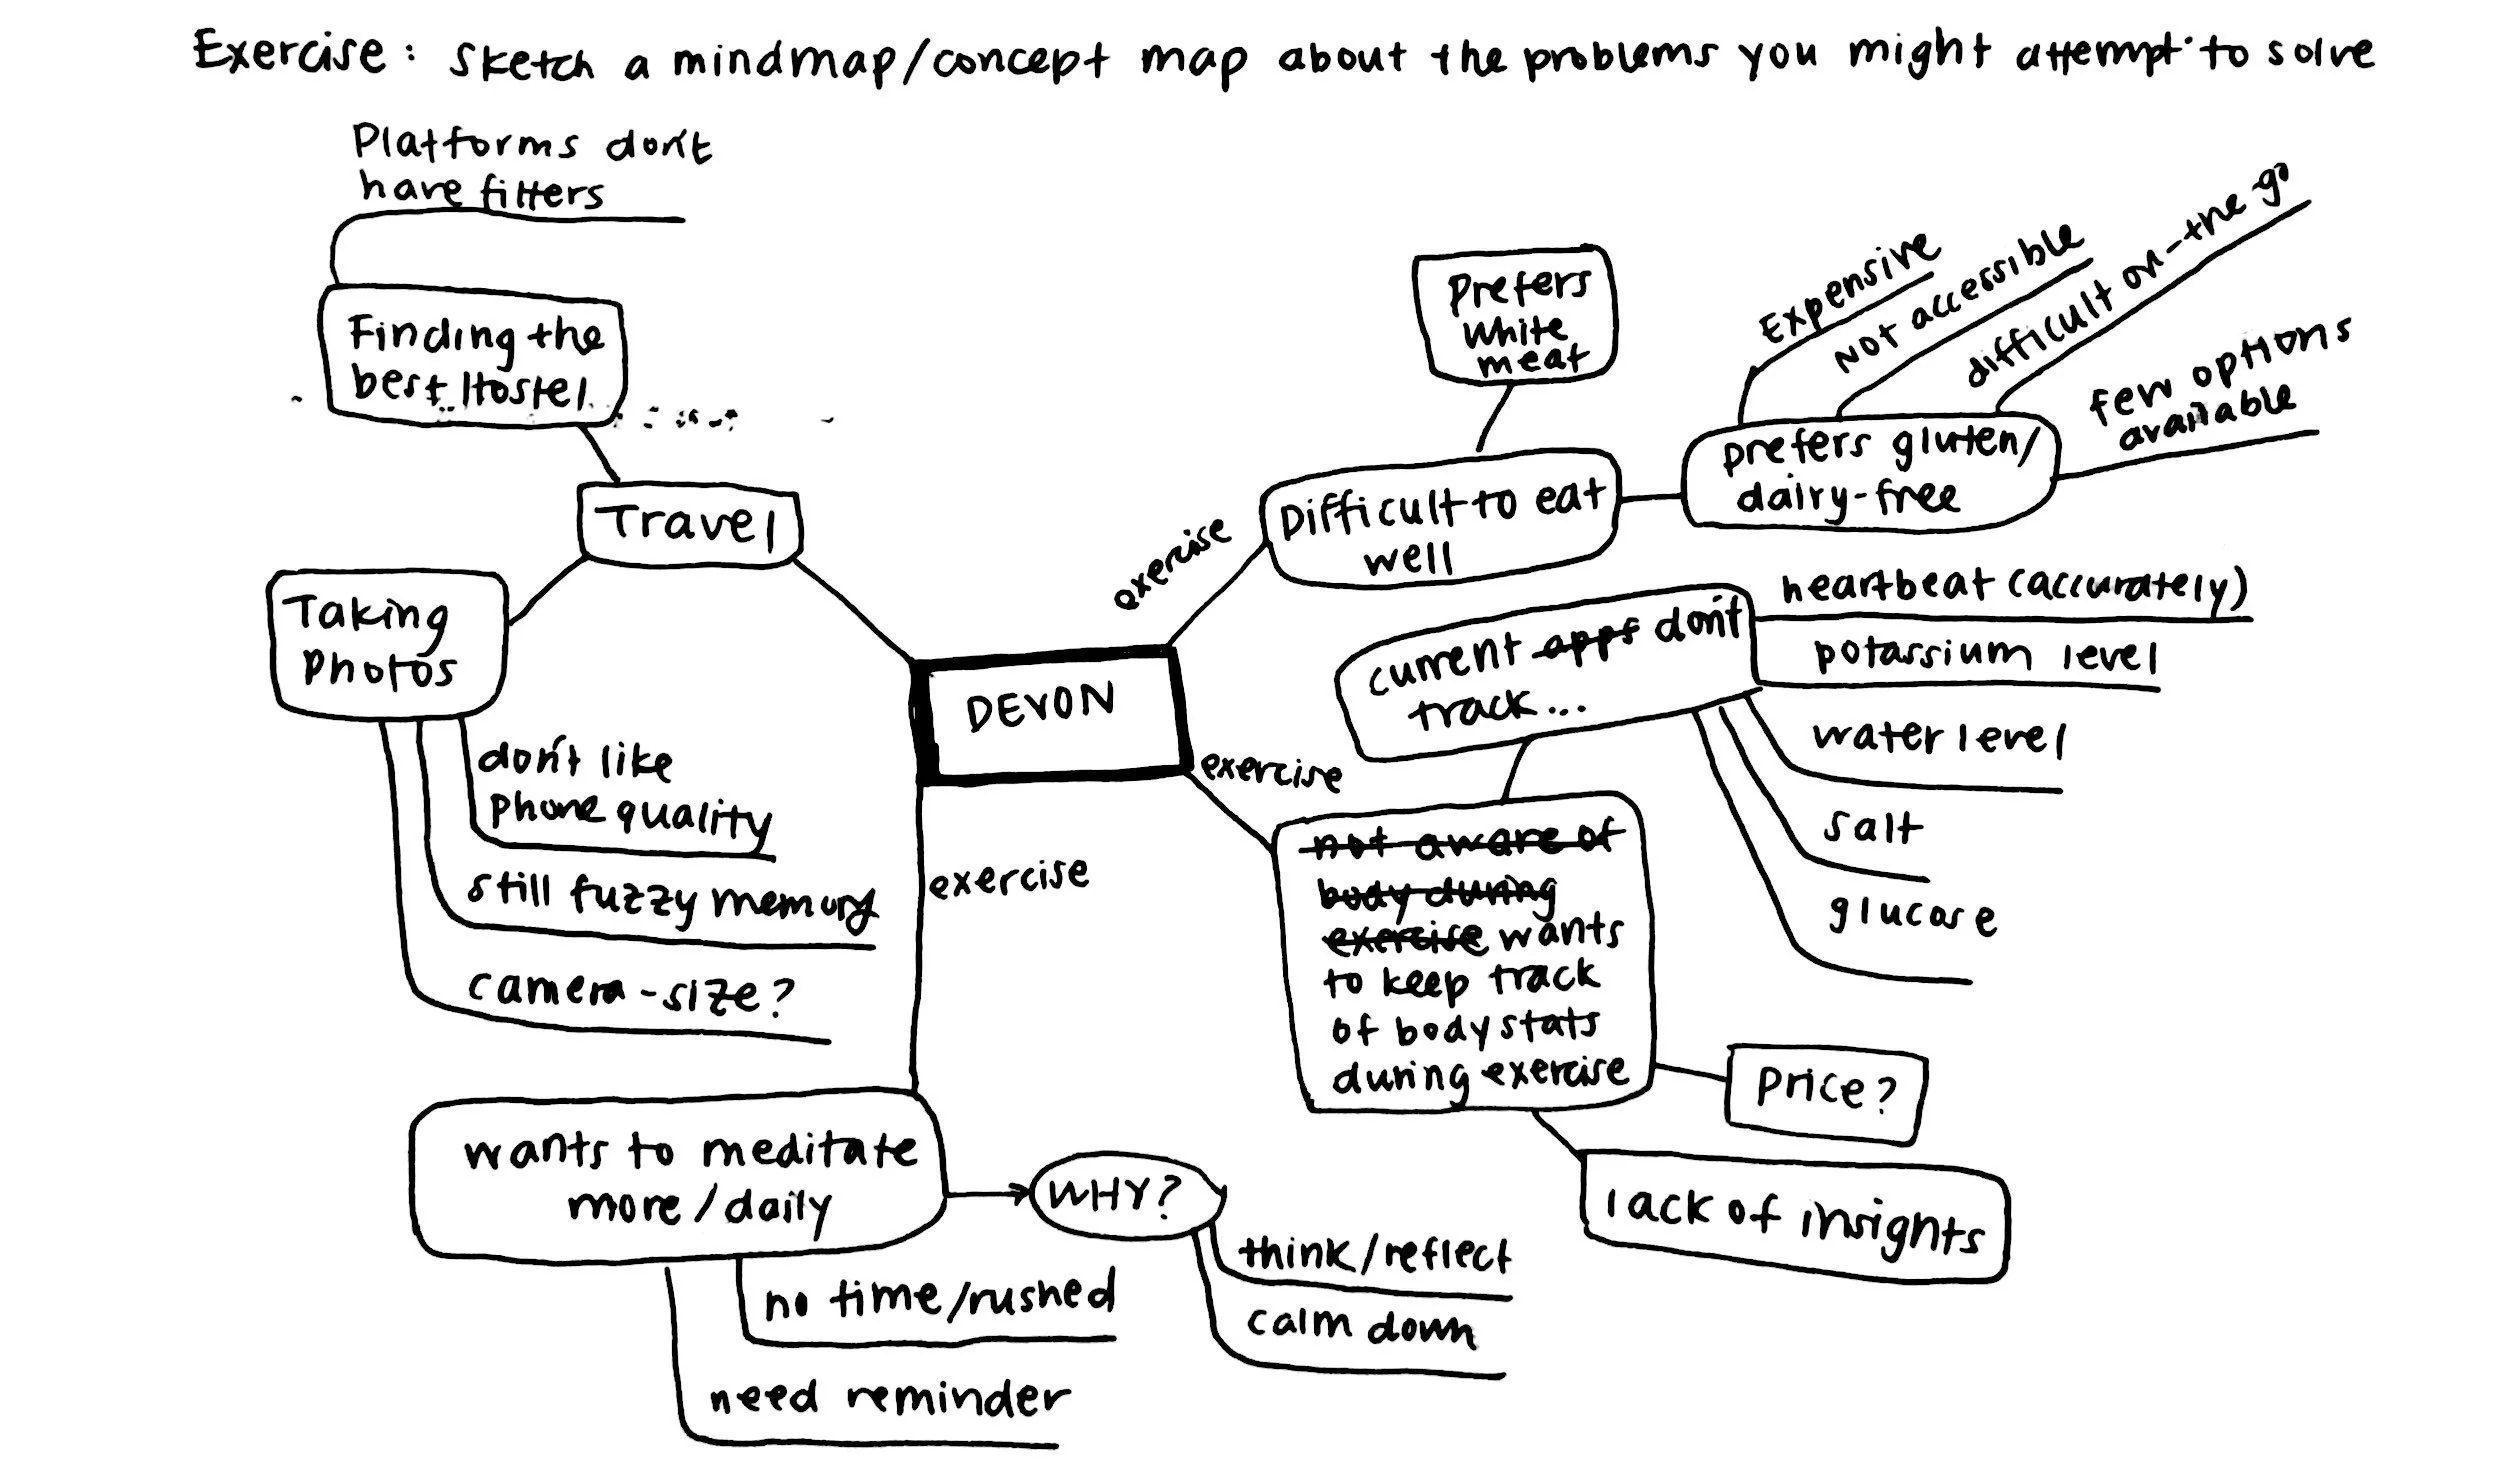 Exercise: sketch a mindmap/concept map about the problems you might attempt to solve
Platforms don't
have filters
Finding the
best Hostel
Travel
Taking
Photos
don't like
phone quality
still fuzzy memory
camera-size?
DEVON
exercise
Difficult to eat
well
Prefers
white
meat
prefers gluten/
dairy-free
Expensive
Not accessible
difficult on-the go
Few options
available
exercise
current apps don't
track...
heartbeat (accurately)
potassium level
water level
salt
glucose
not aware of
body during
exercise wants
to keep track
of body stats
during exercise
Price?
lack of insights
exercise
wants to meditate
more/daily
WHY?
think/reflect
calm down
no time/rushed
need reminder